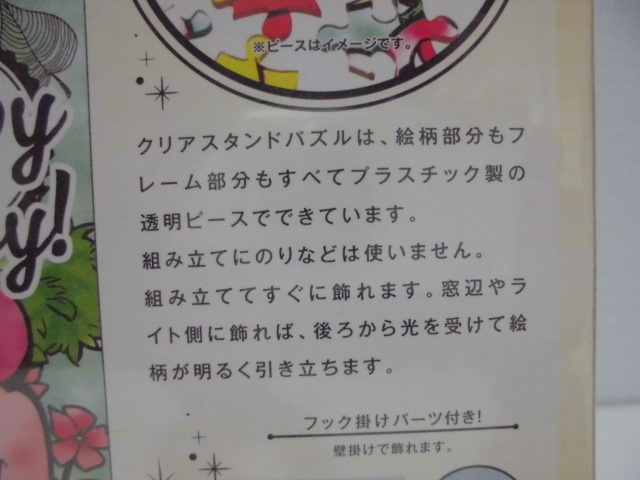 ※ピースはイメージです。
クリアスタンドパズルは、絵柄部分もフ
レーム部分もすべてプラスチック製の
透明ピースでできています。
組み立てにのりなどは使いません。
組み立ててすぐに飾れます。窓辺やラ
イト側に飾れば、後ろから光を受けて絵
柄が明るく引き立ちます。
フック掛けパーツ付き!
壁掛けで飾れます。